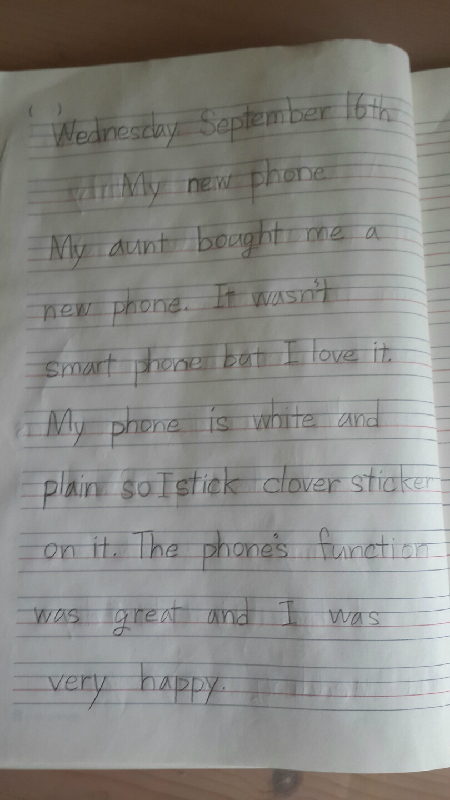 ( )
Wednesday. September 16th
My new phone
My aunt bought me a
new phone. It wasn't
smart phone but I love it.
My phone is white and
plain so I stick clover sticker
on it. The phone's function
was great and I was
very happy.